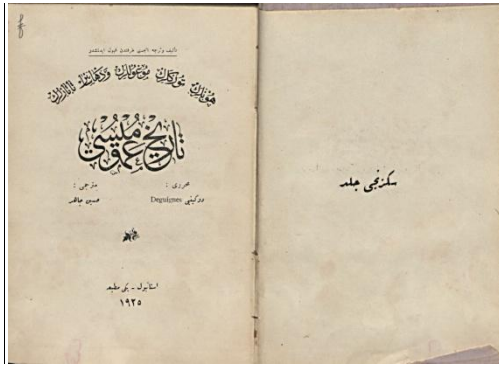 تأليف وترجمه انجمنى طرفندن قبول ايدلمشدر
هونلرك، توركلرك، موغوللرك ودها سائر تاتارلرك
تاريخ عموميسى
محررى : مترجمى :
دوكينى Deguignes حسين جاهد
استانبول - يكى مطبعه
١٩٢٥
سكزنجى جلد